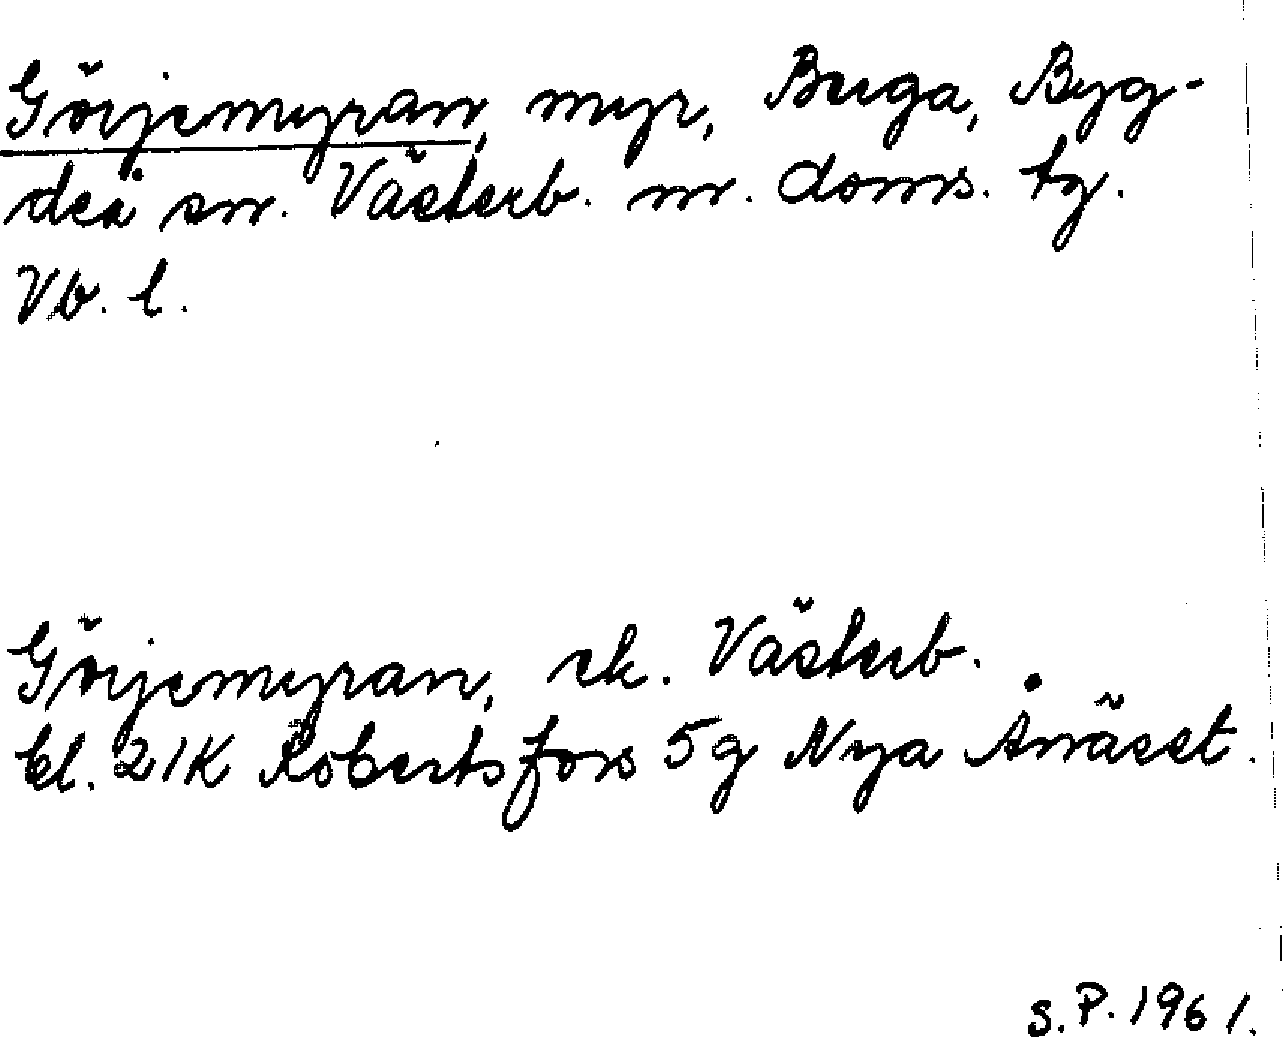 Görjemyran, myr, Berga, Byg-
deå sn. Västerb. n. doms. tg.
Vb. l.
Görjemyran, ek. Västerb.
bl. 21K Robertsfors 5g Nya Ånäset.
S.P. 1961.